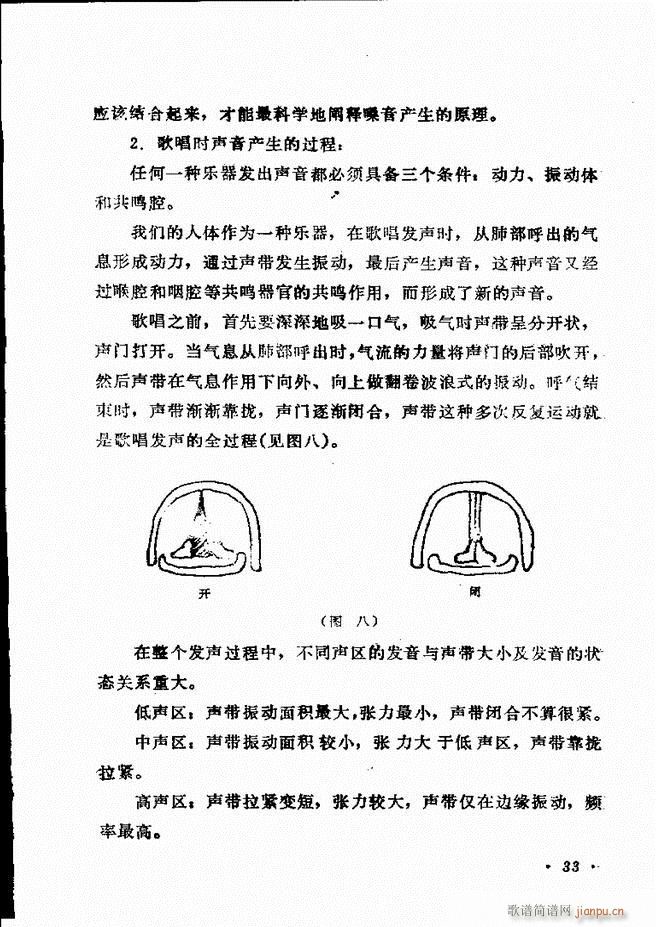 应该结合起来，才能最科学地阐释嗓音产生的原理。
2．歌唱时声音产生的过程：
任何一种乐器发出声音都必须具备三个条件：动力、振动体
和共鸣腔。
我们的人体作为一种乐器，在歌唱发声时，从肺部呼出的气
息形成动力，通过声带发生振动，最后产生声音，这种声音又经
过喉腔和咽腔等共鸣器官的共鸣作用，而形成了新的声音。
歌唱之前，首先要深深地吸一口气，吸气时声带呈分开状，
声门打开。当气息从肺部呼出时，气流的力量将声门的后部吹开，
然后声带在气息作用下向外、向上做翻卷波浪式的振动。呼气结
束时，声带渐渐靠拢，声门逐渐闭合，声带这种多次反复运动就
是歌唱发声的全过程(见图八)。
开
闭
(图 八)
在整个发声过程中，不同声区的发音与声带大小及发音的状
态关系重大。
低声区：声带振动面积最大，张力最小，声带闭合不算很紧。
中声区：声带振动面积较小，张力大于低声区，声带靠拢
拉紧。
高声区：声带拉紧变短，张力较大，声带仅在边缘振动，频
率最高。
· 33 ·
歌谱简谱网 jianpu.cn